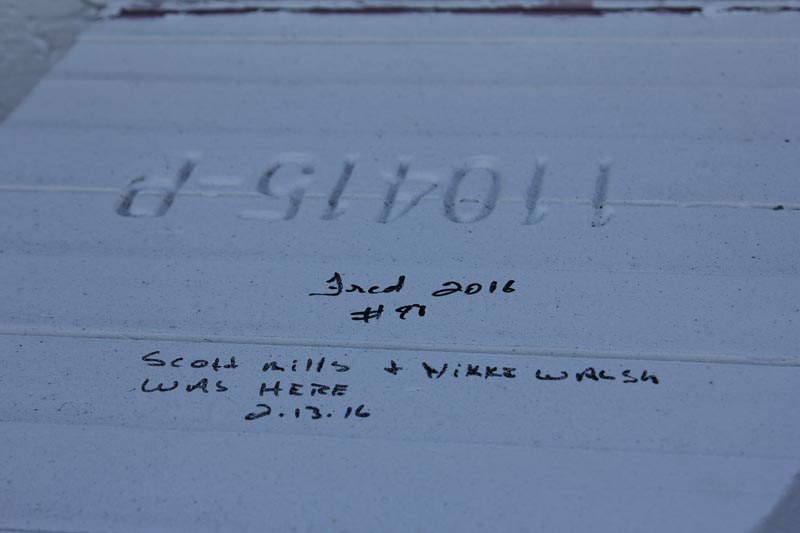 110415-P
Fred 2016
Scott mills + NIKKI WALSH
WAS HERE
2.13.16